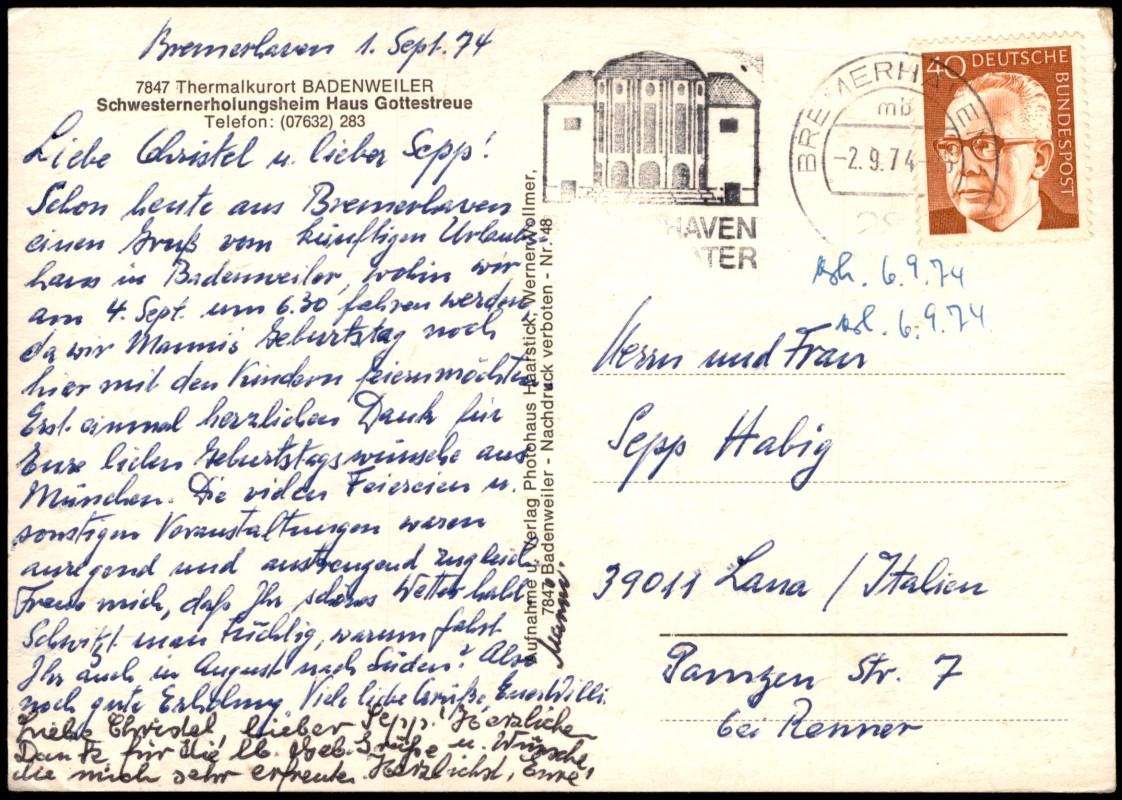 Bremerhaven 1. Sept. 74
7847 Thermalkurort BADENWEILER
Schwesternerholungsheim Haus Gottestreue
Telefon: (07632) 283
Liebe Christel u. lieber Sepp!
Schon heute aus Bremerhaven
einen Gruß vom künftigen Urlaubs-
haus in Badenweiler, wohin wir
am 4. Sept. um 6.30 fahren werden,
da wir Mannis Geburtstag noch
hier mit den Kindern feiern möchten.
Erst einmal herzlichen Dank für
Eure lieben Geburtstagswünsche aus
München. Die vielen Feiereien u.
sonstigen Veranstaltungen waren
anregend und anstrengend zugleich.
Freue mich, daß Ihr schönes Wetter habt.
Schwitzt man tüchtig, warum fahrt
Ihr auch im August nach Süden? Also
noch gute Erholung. Viele liebe Grüße, Euer Willi.
Liebe Christel, lieber Sepp! Herzlichen
Dank für die lb. Geb. Grüße u. Wünsche,
die mich sehr erfreuten. Herzlichst, Eure
Manni.
Aufnahme u. Verlag Photohaus Haarstick, Werner Wollmer,
7847 Badenweiler - Nachdruck verboten - Nr. 48
HAVEN
TER
BREMERHAVEN
mb
-2.9.74-
28
40 DEUTSCHE
BUNDESPOST
6.9.74
6.9.74
Herrn und Frau
Sepp Habig
39011 Lana / Italien
Pamzen Str. 7
bei Renner